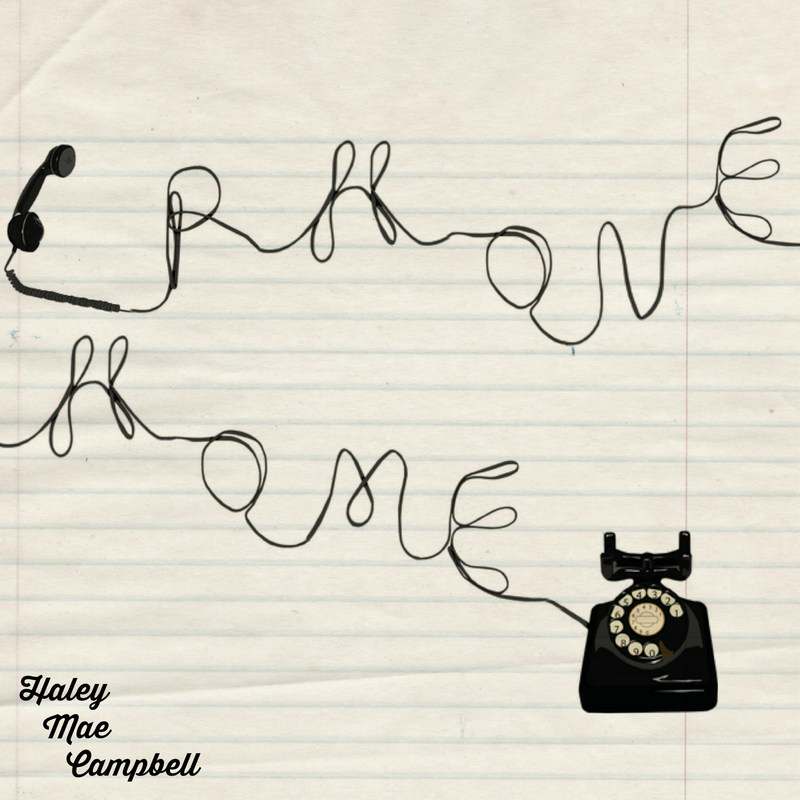 PHONE
HOME
Haley
Mae
Campbell